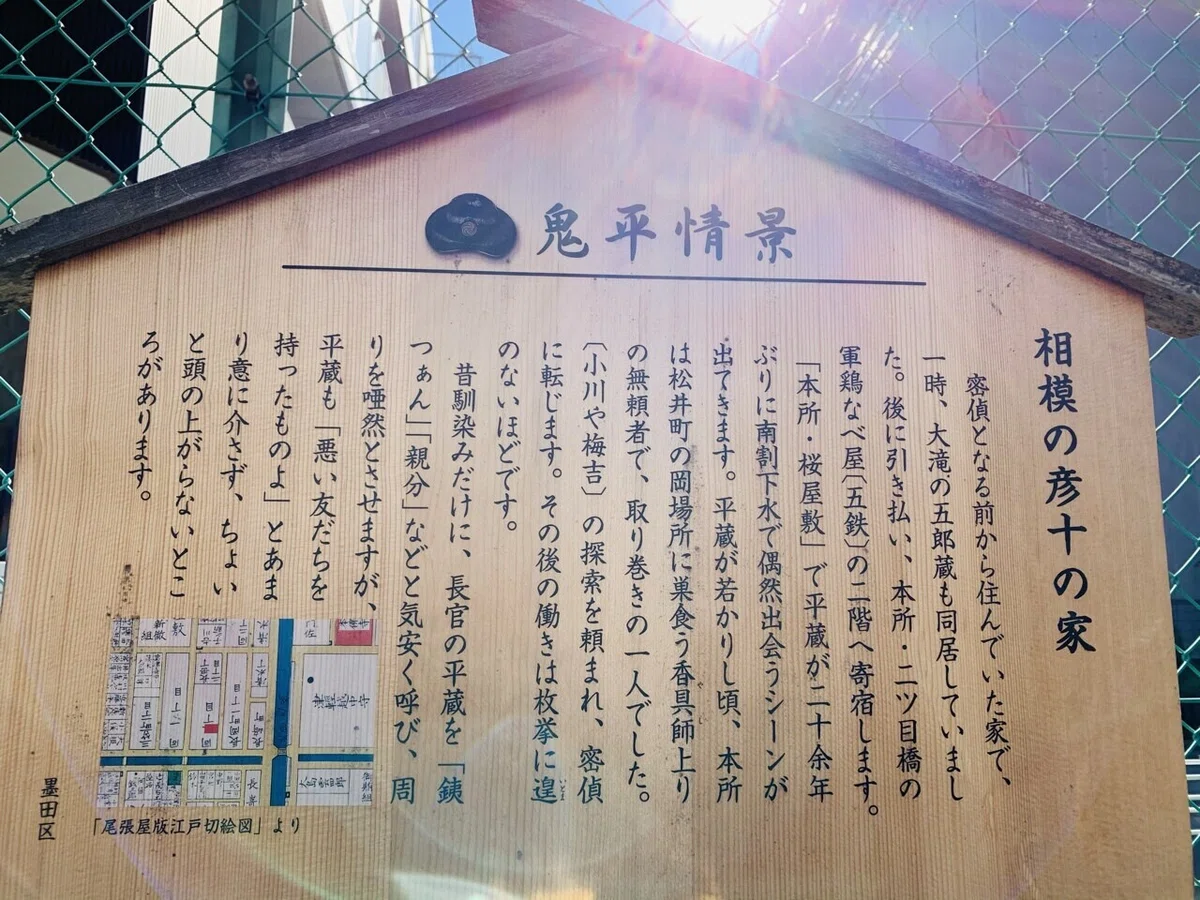 鬼平情景
相模の彦十の家
密偵となる前から住んでいた家で、
一時、大滝の五郎蔵も同居していまし
た。後に引き払い、本所・二ツ目橋の
軍鶏なべ屋〔五鉄〕の二階へ寄宿します。
「本所・桜屋敷」で平蔵が二十余年
ぶりに南割下水で偶然出会うシーンが
出てきます。平蔵が若かりし頃、本所
は松井町の岡場所に巣食う香具師上り
の無頼者で、取り巻きの一人でした。
〔小川や梅吉〕の探索を頼まれ、密偵
に転じます。その後の働きは枚挙に遑
いとま
のないほどです。
昔馴染みだけに、長官の平蔵を「銕
つぁん」「親分」などと気安く呼び、周
りを唖然とさせますが、
平蔵も「悪い友だちを
持ったものよ」とあま
り意に介さず、ちょい
と頭の上がらないとこ
ろがあります。
「尾張屋版江戸切絵図」より
墨田区